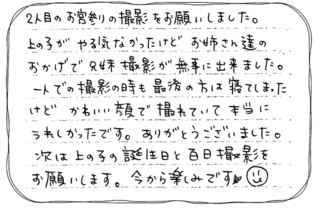 2人目のお宮参りの撮影をお願いしました。
上の子が やる気なかったけど お姉さん達の
おかげで 兄妹撮影が無事に出来ました。
一人での撮影の時も最後の方は寝てしまった
けど かわいい顔で 撮れていて 本当に
うれしかったです。ありがとうございました。
次は上の子の誕生日と百日撮影を
お願いします。今から楽しみです